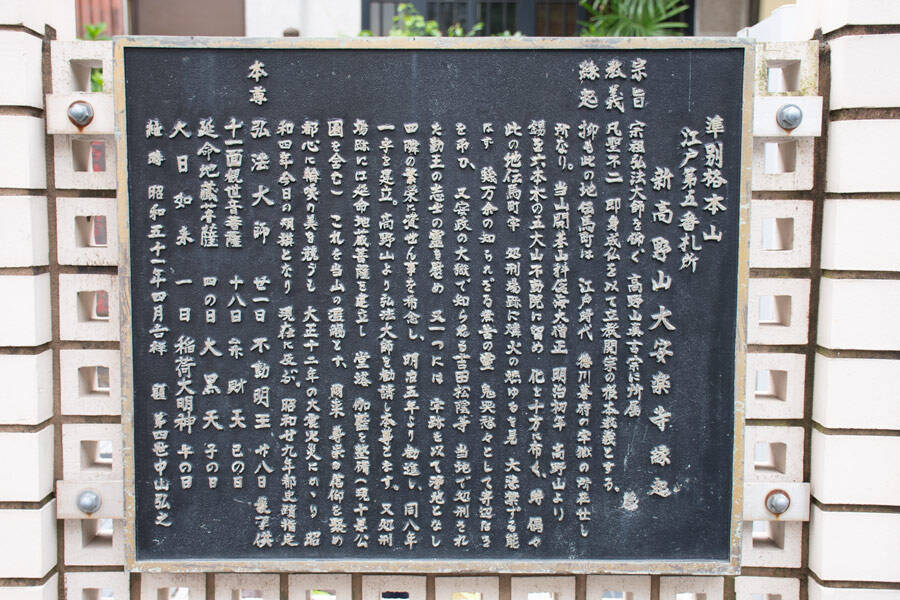 準別格本山
江戸第五番札所
新高野山大安楽寺縁起
宗旨 宗祖弘法大師を仰ぐ 高野山真言宗に所属
教義 凡聖不二 即身成仏を以て立教開宗の根本教義とする。
縁起 抑も此の地伝馬町は 江戸時代 徳川幕府の牢獄の所在せし
所なり。 当山開基山科俊海大僧正 明治初年 高野山より
錫を六本木の五大山不動院に留め 化を十方に布く、時 偶々
此の地伝馬町牢 処刑場跡に燐火の燃ゆるを見 大悲
なす 幾万余の知られざる 霊 鬼哭愁々として
を弔ひ 又安政の大獄で知られる吉田松陰等 当地で処刑され
た勤王の志士の霊を慰め 又一つには 牢跡を以て浄地となし
四隣の繁栄 を希念し、明治五年より勧進し、同八年
一宇を建立。高野山より弘法大師を勧請し本尊となす。又処刑
場跡には延命地蔵菩薩を建立し 堂塔 伽藍を整備(現十思公
園を含む) これを当山の とす、爾来 の信仰を聚め
都心に輪喚の美を競うも 大正十二年の大震火災にあり 昭
和四年今日の となり 現在に及ぶ。昭和廿九年都史蹟指定
本尊 弘法大師 廿一日 不動明王 廿八日
十一面観世音菩薩 十八日 弁財天 巳の日
延命地蔵菩薩 四の日 大黒天 子の日
大日如来 一日 稲荷大明神 午の日
維時 昭和五十一年四月吉祥 第四世中山弘之